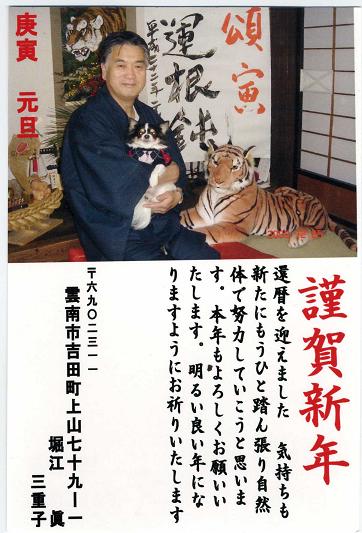 頌寅
運根鈍
庚寅 元旦
謹賀新年
還暦を迎えました 気持ちも
新たにもうひと踏ん張り自然
体で努力していこうと思いま
す。本年もよろしくお願いい
たします。明るい良い年にな
りますようにお祈りいたします
〒六九〇二三一一
雲南市吉田町上山七十九ー一
堀江 眞
三重子